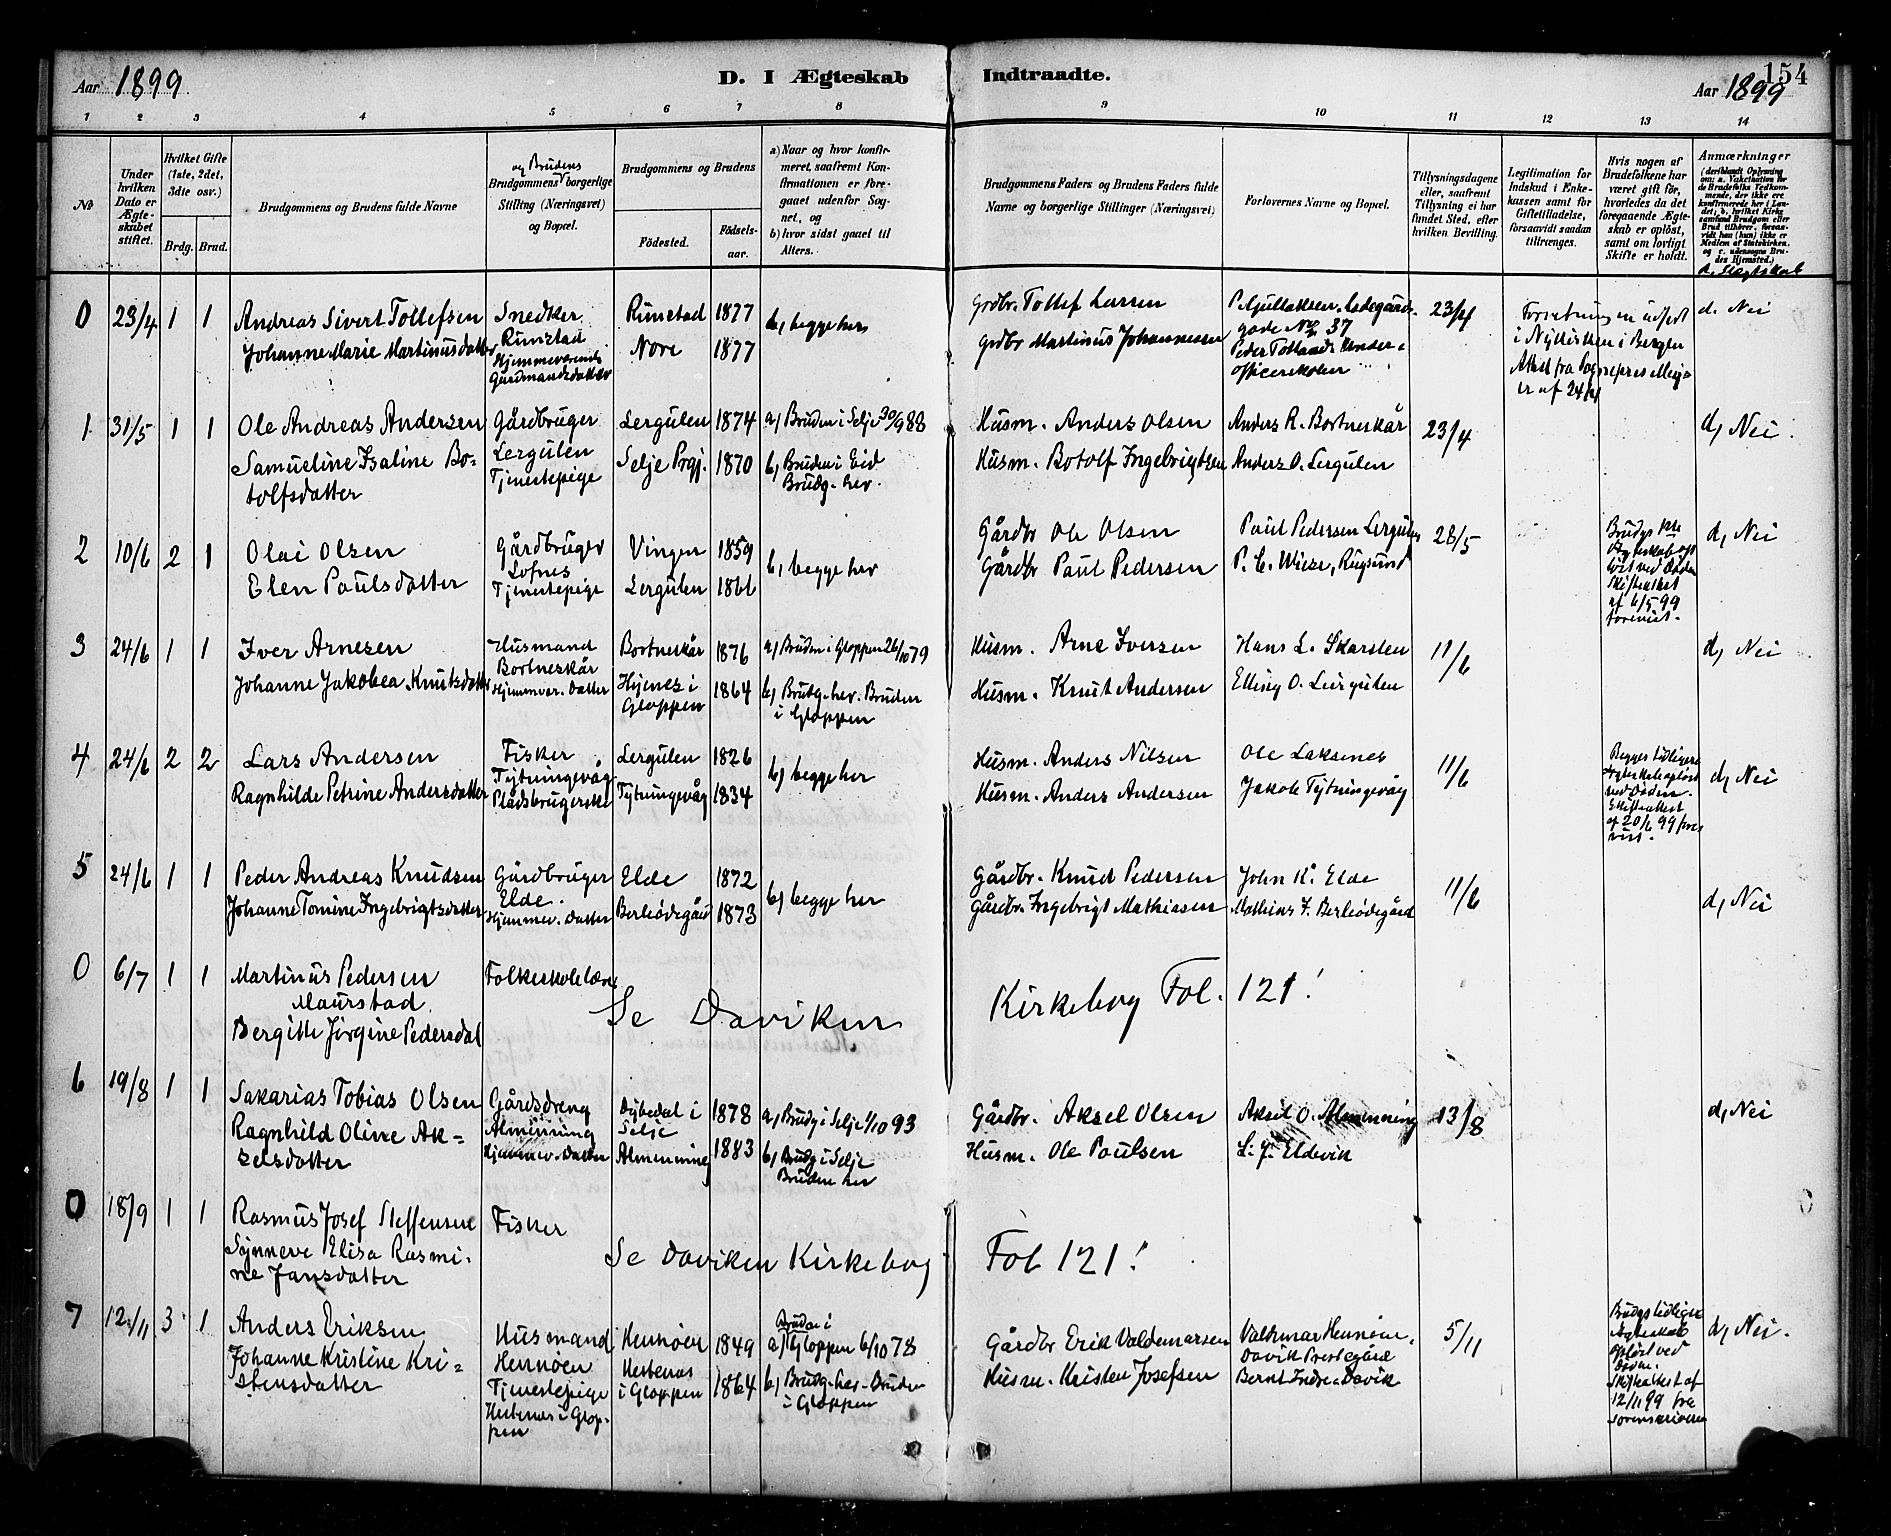 Aar 1899
D. I Ægteskab
Indtraadte.
154
Aar 1899
1 2 3 4 5 6 7 8 9 10 11 12 13 14
№
Under hvilken Dato er Ægteskabet stiftet.
Hvilket Gifte (1ste, 2det, 3die osv.)
Brdg. Brud.
Brudgommens og Brudens fulde Navne
og Brudens
Brudgommens borgerlige Stilling (Næringsvei) og Bopæl.
Brudgommens og Brudens
Födested.
Födsels-aar.
a) Naar og hvor konfirmeret, saafremt Konfirmationen er foregaaet udenfor Sognet, og
b) hvor sidst gaaet til Alters.
Brudgommens Faders og Brudens Faders fulde Navne og borgerlige Stillinger (Næringsvei)
Forlovernes Navne og Bopæl.
Tillysningsdagene eller, saafremt Tillysning ei har fundet Sted, efter hvilken Bevilling.
Legitimation for Indskud i Enkekassen samt for Giftetilladelse, forsaavidt saadan tiltrænges.
Hvis nogen af Brudefolkene har været gift för, hvorledes da det foregaaende Ægteskab er oplöst, samt om lovligt Skifte er holdt.
Anmærkninger
d, Slægtskab
0 23/4 1 1 Andreas Sivert Tollefsen
Johanne Marie Martinusdatter
Snedker
Rimstad
Gårdmandsdatter
Rimstad 1877
Nore 1877
b, begge her
Grdbr. Tollef Larsen
Grdbr Martinus Johannesen
gade No 37
23/4
d. Nei
1 31/5 1 1 Ole Andreas Andersen
Samueline Isaline Bo-
tolfsdatter
Gårdbruger
Lergulen
Tjenestepige
Lergulen 1874
Selje Prgj. 1870
a, Bruden i Selje 30/9 88
b, Bruden i Eid
Brudg. her.
Husm. Anders Olsen
Husm. Botolf Ingebrigtsen
Anders R. Bortneskår
Anders O. Lergulen
23/4
d, Nei.
2 10/6 2 1 Olai Olsen
Elen Paulsdatter
Gårdbruger
Lofnes
Tjenestepige
Vingen 1859
Lergulen 1866
b, begge her
Gårdbr Ole Olsen
Gårdbr Paul Pedersen
Paul Pedersen Lergulen
P. C. Wiese, Rugsund
28/5
af 6/5 99
d, Nei
3 24/6 1 1 Iver Arnesen
Johanne Jakobea Knutsdatter
Husmand
Bortneskår
Hjemmev. Datter
Bortneskår 1876
Hjenes i Gloppen 1864
a, Bruden i Gloppen 26/10 79
b, Brudg. her. Bruden
i Gloppen
Husm. Arne Iversen
Husm. Knut Andersen
Hans L. Skarsten
Elling O. Lergulen
11/6
d, Nei
4 24/6 2 2 Lars Andersen
Ragnhilde Petrine Andersdatter
Fisker
Tytningevåg
Pladsbrugerske
Lergulen 1826
Tytningevåg 1834
b, begge her
Husm. Anders Nilsen
Husm. Anders Andersen
Ole Laksenes
Jakob Tytningevåg
11/6
Begges tidligere
Ægteskab opløst
ved Døden.
Skifteattest
af 20/6 99
d, Nei
5 24/6 1 1 Peder Andreas Knudsen
Johanne Tomine Ingebrigtsdatter
Gårdbruger
Elde.
Hjemmev. Datter
Elde 1872
Berleødegård 1873
b, begge her
Gårdbr. Knud Pedersen
Gårdbr. Ingebrigt Mathiasen
John K. Elde
Mathias I. Berleødegård
11/6
d, Nei
0 6/7 1 1 Martinus Pedersen
Maurstad
Bergitte Jørgine Pedersdat
Folkeskolelærer
Se Daviken Kirkebog Fol. 121!
6 19/8 1 1 Sakarias Tobias Olsen
Ragnhild Oline Ak-
selsdatter
Gårdsdreng
Almenning
Hjemmev. Datter
Dybedal i Selje 1878
Almenning 1883
a, Brudg i Selje 1/10 93
b, Brudg i Selje
Bruden her
Gårdbr. Aksel Olsen
Husm. Ole Paulsen
Aksel O. Almenning
L. J. Eldevik
13/8
d, Nei
0 18/9 1 1 Rasmus Josef Steffensen
Synneve Elisa Rasmi-
ne Jansdatter
Fisker
Se Daviken Kirkebog Fol 121!
7 12/11 3 1 Anders Eriksen
Johanne Kristine Kri-
stensdatter
Husmand
Hennøen
Tjenestepige
Hestenes i Glop-
pen
Hennøen 1849
Hestenes i Gloppen 1864
Bruden i
a, Gloppen 6/10 78
b, Brudg. her. Bruden
i Gloppen
Gårdbr Erik Valdemarsen
Husm. Kristen Josefsen
Valdemar Hennøen,
Davik Prestegård
Bernt Indre-Davik
5/11
Brudgs tidligere
Ægteskab
opløst ved
Døden.
Skifteattest af
12/11 99 fra
Sorenskriveren
d, Nei.